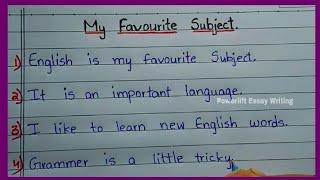 My Favourite Subject.
1) English is my favourite Subject.
2) It is an important language.
Powerlift Essay Writing
3) I like to learn new English words.
4) Grammer is a little tricky,